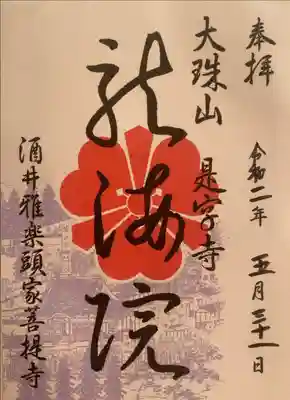 奉拝 令和二年 五月三十一日
大珠山 是字寺
龍海院
酒井雅楽頭家菩提寺